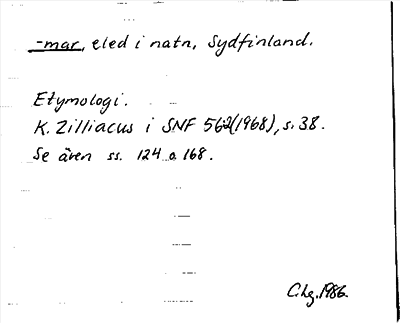 -mar, eled i natn, Sydfinland.
Etymologi.
K. Zilliacus i SNF 562(1968), s. 38.
Se även ss. 124 o. 168.
C.hg. 1986.